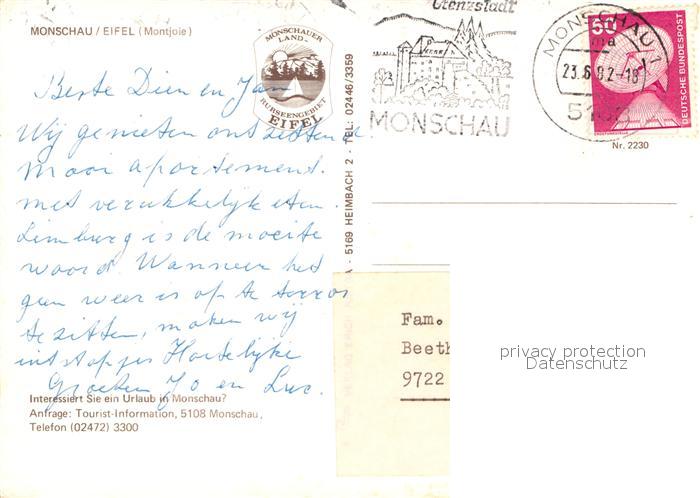 MONSCHAU / EIFEL (Montjoie)
MONSCHAUER
LAND-
RURSEENGEBIET
EIFEL
MONSCHAU
MONSCHAU 1
ma
23.6.82-18
50
DEUTSCHE BUNDESPOST
Nr. 2230
Beste Dien en Jan
Wij genieten ontzettend.
Mooi apartement.
met verukkelijk eten.
Limburg is de moeite
waard. Wanneer het
geen weer is op te terras
te zitten, maken wij
uitstapjes Hartelijke
Groeten Jo en Luc.
5169 HEIMBACH 2 · TEL. 02446/3359
Fam.
Beeth
9722
privacy protection
Datenschutz
Interessiert Sie ein Urlaub in Monschau?
Anfrage: Tourist-Information, 5108 Monschau,
Telefon (02472) 3300